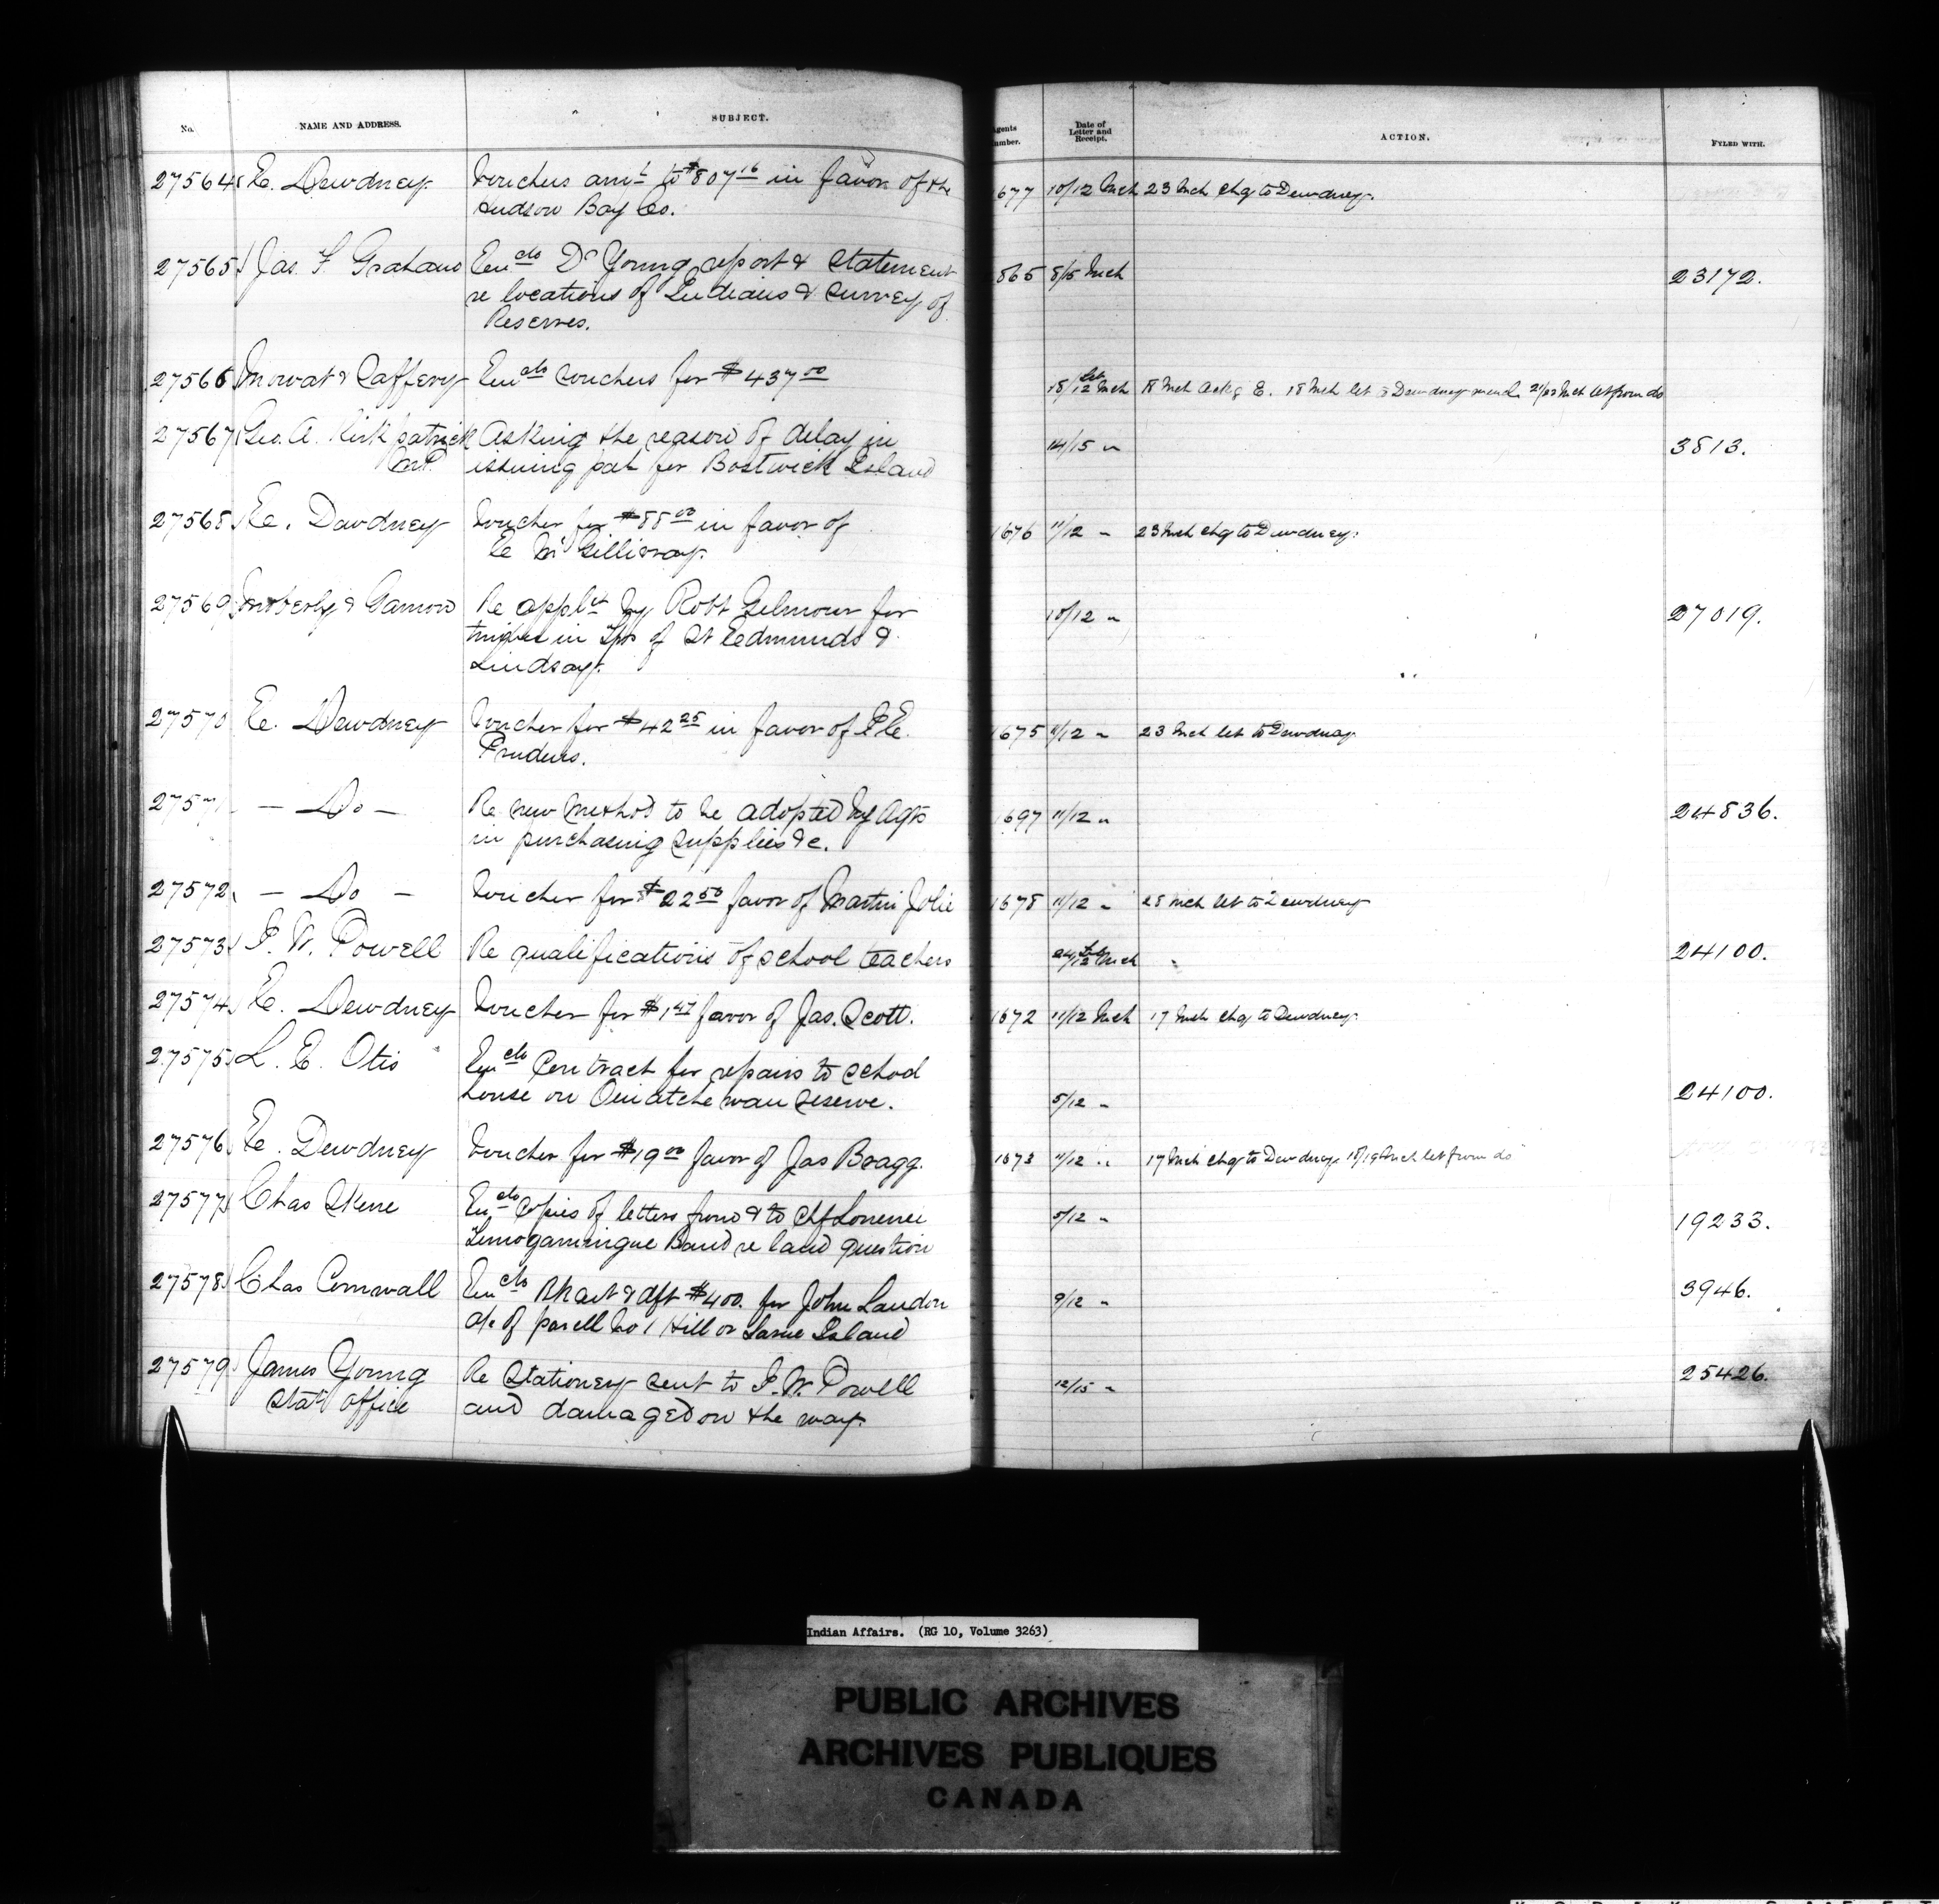 No. NAME AND ADDRESS. SUBJECT. Agents Number. Date of Letter and Receipt. ACTION. FYLED WITH.
27564 E. Dewdney Vouchers amt to $807 16 in favor of the 1677 10/12 Mch 23 Mch chq to Dewdney.
Hudson Bay Co.
27565 Jas. F. Graham Encls Dr Young report & statement 865 8/15 Mch 23172.
re locations of Indians & survey of
Reserves.
27566 Mowat & Caffery Encls vouchers for $437 00 18 Mch ackg E. 18 Mch let to Dewdney 21/23 Mch let from do
27567 Geo. A. Kirkpatrick Asking the reason of delay in 14/15 " 3813.
M.P. issuing pat for Bostwick Island
27568 E. Dewdney Voucher for $88 00 in favor of 1676 11/12 " 23 Mch chq to Dewdney.
E McGillivray.
27569 Moberly & Gamon Re applcn by Robt Gilmour for 10/12 " 27019.
timber in Tps of St Edmunds &
Lindsay.
27570 E. Dewdney Voucher for $42 25 in favor of P E 1675 11/12 " 23 Mch let to Dewdney
Prudens.
27571 — Do — Re new method to be adopted by Agts 1697 11/12 " 24836.
in purchasing supplies &c.
27572 — Do — Voucher for $22 50 favor of Martin Jolie 1678 11/12 " 28 Mch let to Dewdney
27573 I. W. Powell Re qualifications of school teachers 24100.
27574 E. Dewdney Voucher for $1 47 favor of Jas. Scott. 1672 11/12 Mch 17 Mch chq to Dewdney.
27575 L. E. Otis Encls Contract for repairs to school
house on Ouiatchewan reserve. 5/12 " 24100.
27576 E. Dewdney Voucher for $19 00 favor of Jas Bragg. 1673 11/12 " 17 Mch chq to Dewdney. 18/19 Mch let from do
27577 Chas Skene Encls copies of letters from & to Chf 5/12 " 19233.
Temogamingue Band re land question
27578 Chas Cornwall Encls Bk act & dft $400. for John Landon 9/12 " 3946.
a/c of parcell No 1 Hill or Island
27579 James Young Re Stationery sent to I. W. Powell 12/15 " 25426.
Staty office and damaged on the way.
Indian Affairs. (RG 10, Volume 3263)
PUBLIC ARCHIVES
ARCHIVES PUBLIQUES
CANADA